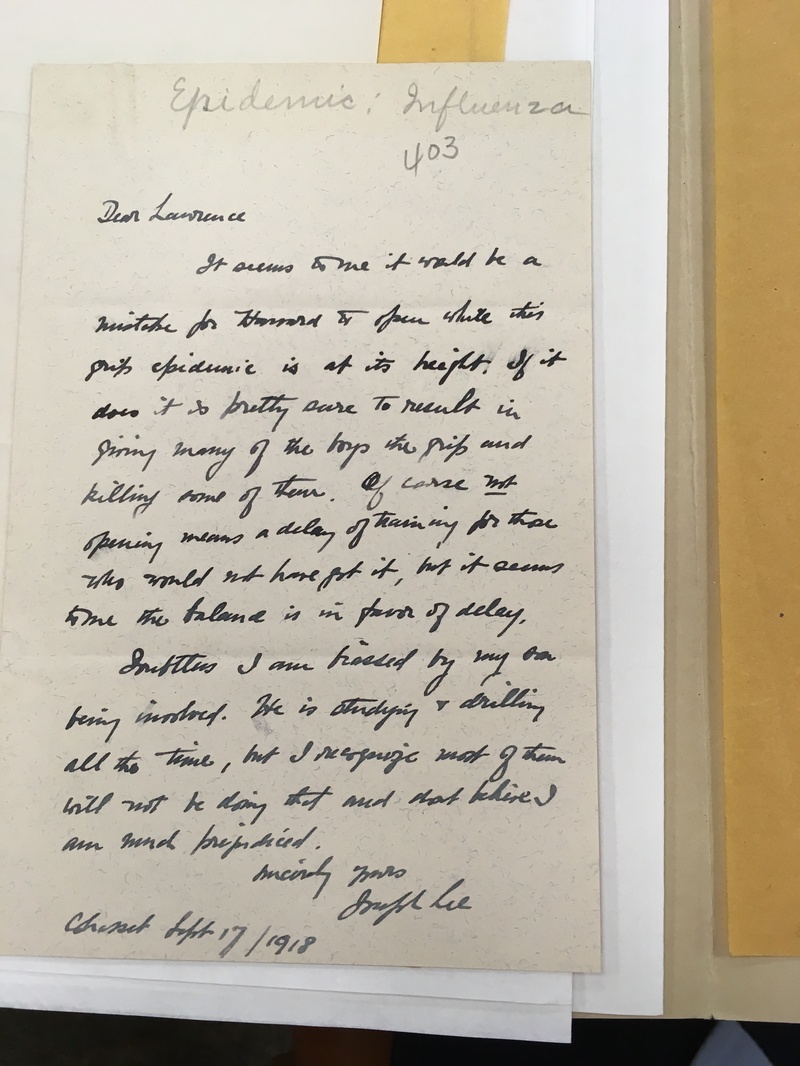 Epidemic: Influenza
403
Dear Lawrence
It seems to me it would be a
mistake for Harvard to open while this
grip epidemic is at its height. If it
does it is pretty sure to result in
giving many of the boys the grip and
killing some of them. Of course not
opening means a delay of training for those
who would not have got it, but it seems
to me the balance is in favor of delay.
Doubtless I am biassed by my son
being involved. He is studying & drilling
all the time, but I recognize most of them
will not be doing that and dont believe I
am much prejudiced.
Sincerely yours
Joseph Lee
Cohasset Sept 17/1918